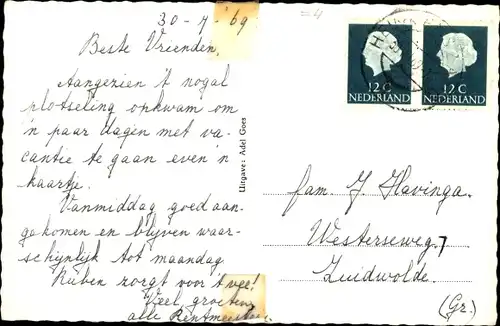 30-7-'69
Beste Vrienden,
Aangezien 't nogal
plotseling opkwam om
'n paar dagen met va-
cantie te gaan even 'n
kaartje.
Vanmiddag goed aan-
gekomen en blijven waar-
schijnlijk tot maandag
Ruben zorgt voor 't vee!
Veel groeten
alle
Uitgave: Adel Goes
12 C
NEDERLAND
12 C
NEDERLAND
fam. J Havinga.
Westerseweg 7
Zuidwolde.
(Gr.)